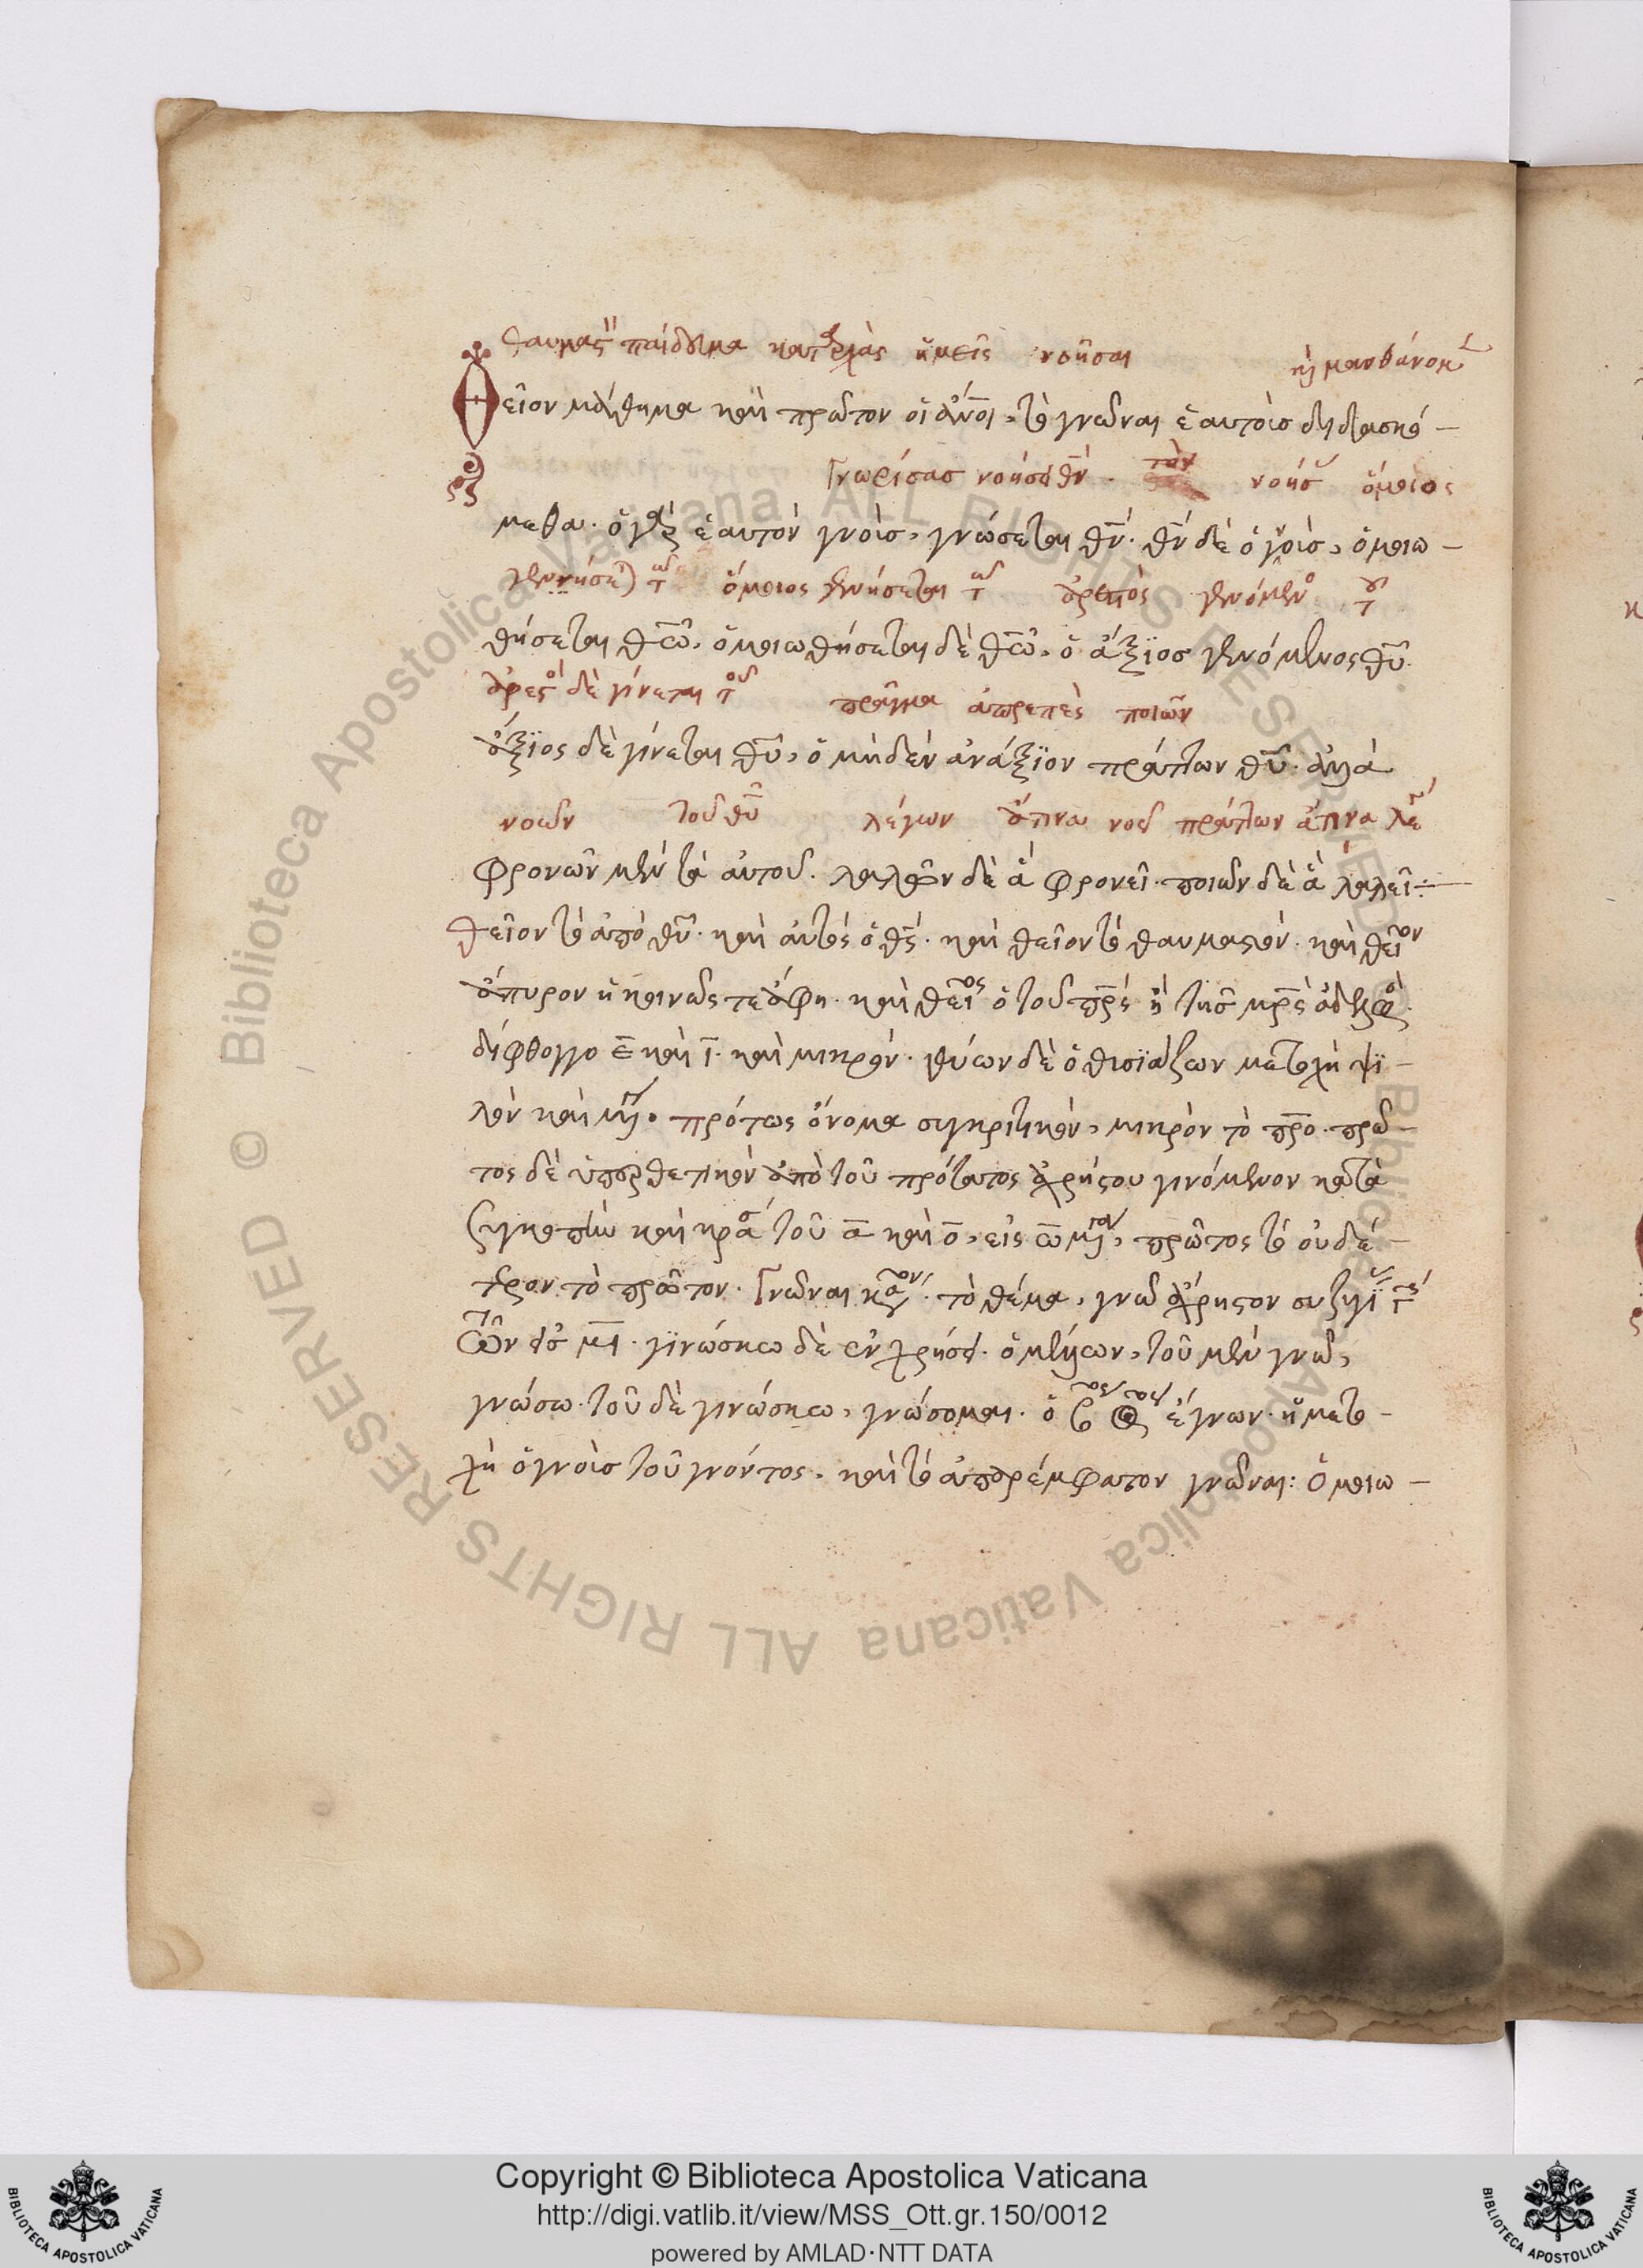 θαυμαστ παίδευμα κατ ἀρχὰς ἡμεῖς νοῆσαι
μανθάνομ
Θεῖον μάθημα καὶ πρῶτον οἱ ἄνοι, τὸ γνῶναι ἑαυτοὺς διδασκό-
Γνωρίσας νοήσει θν. τὸν νοήσ ὅμοιος
μεθα. ὁ γὰρ ἑαυτὸν γνοὺς, γνώσεται θν. θν δὲ ὁ γνοὺς, ὁμοιω-
γενήσε τῶ ὅμοιος γενήσεται τῶ ἀρεστὸς γενόμενο τοῦ
θήσεται θεῶ. ὁμοιωθήσεται δὲ θεῶ, ὁ ἄξϊος γενόμενος θυ.
ἀρεστο δὲ γίνεται τοῦ πρᾶγμα ἀπρεπὲς ποιῶν
ἄξϊος δὲ γίνεται θυ, ὁ μηδὲν ἀνάξϊον πράττων θυ. ἀλλὰ
νοῶν τοῦ θυ λέγων ἅτινα νοεῖ πράττων ἅτινα λέ
φρονῶν μὲν τὰ αὐτοῦ. λαλῶν δὲ ἃ φρονεῖ. ποιῶν δὲ ἃ λαλεῖ:
θεῖον τὸ ἀπὸ θυ. καὶ αὐτὸς ὁ θς. καὶ θεῖον τὸ θαυμαστὸν. καὶ θεῖον
ἄπυρον ἡ κοινῶς τεάφη. καὶ θεῖος ὁ τοῦ πρς ἢ τῆς μρς ἀδελφὸ.
δίφθογγο ε καὶ ι. καὶ μικρὸν. θύων δὲ ὁ θυσϊάζων μετοχὴ ψϊ-
λὸν καὶ μέγ. πρότως ὄνομα συγκριτικὸν, μικρὸν τὸ προ. πρῶ-
τος δὲ ὑπερθετικὸν ἀπὸ τοῦ πρότατος ἀχρήστου γινόμενον κατὰ
συγκοπὴν καὶ κρα τοῦ α καὶ ο, εἰς ω μέγα, πρῶτος τὸ οὐδέ-
τερον τὸ πρῶτον. Γνῶναι καν. τὸ θέμα, γνῶ ἄχρηστον συζυγί
τῶν εἰς μι. γϊνώσκω δὲ ἐν χρήσει. ὁ μέλλων, τοῦ μὲν γνῶ,
γνώσω. τοῦ δὲ γινώσκω, γνώσομαι. ὁ ἔγνων. ἡ μετο-
χὴ ὁ γνοὺς τοῦ γνόντος. καὶ τὸ ἀπαρέμφατον γνῶναι: Ὁμοιω-
Copyright © Biblioteca Apostolica Vaticana
http://digi.vatlib.it/view/MSS_Ott.gr.150/0012
powered by AMLAD·NTT DATA
BIBLIOTECA APOSTOLICA VATICANA
BIBLIOTECA APOSTOLICA VATICANA
Biblioteca Apostolica Vaticana ALL RIGHTS RESERVED © Biblioteca Apostolica Vaticana ALL RIGHTS RESERVED ©